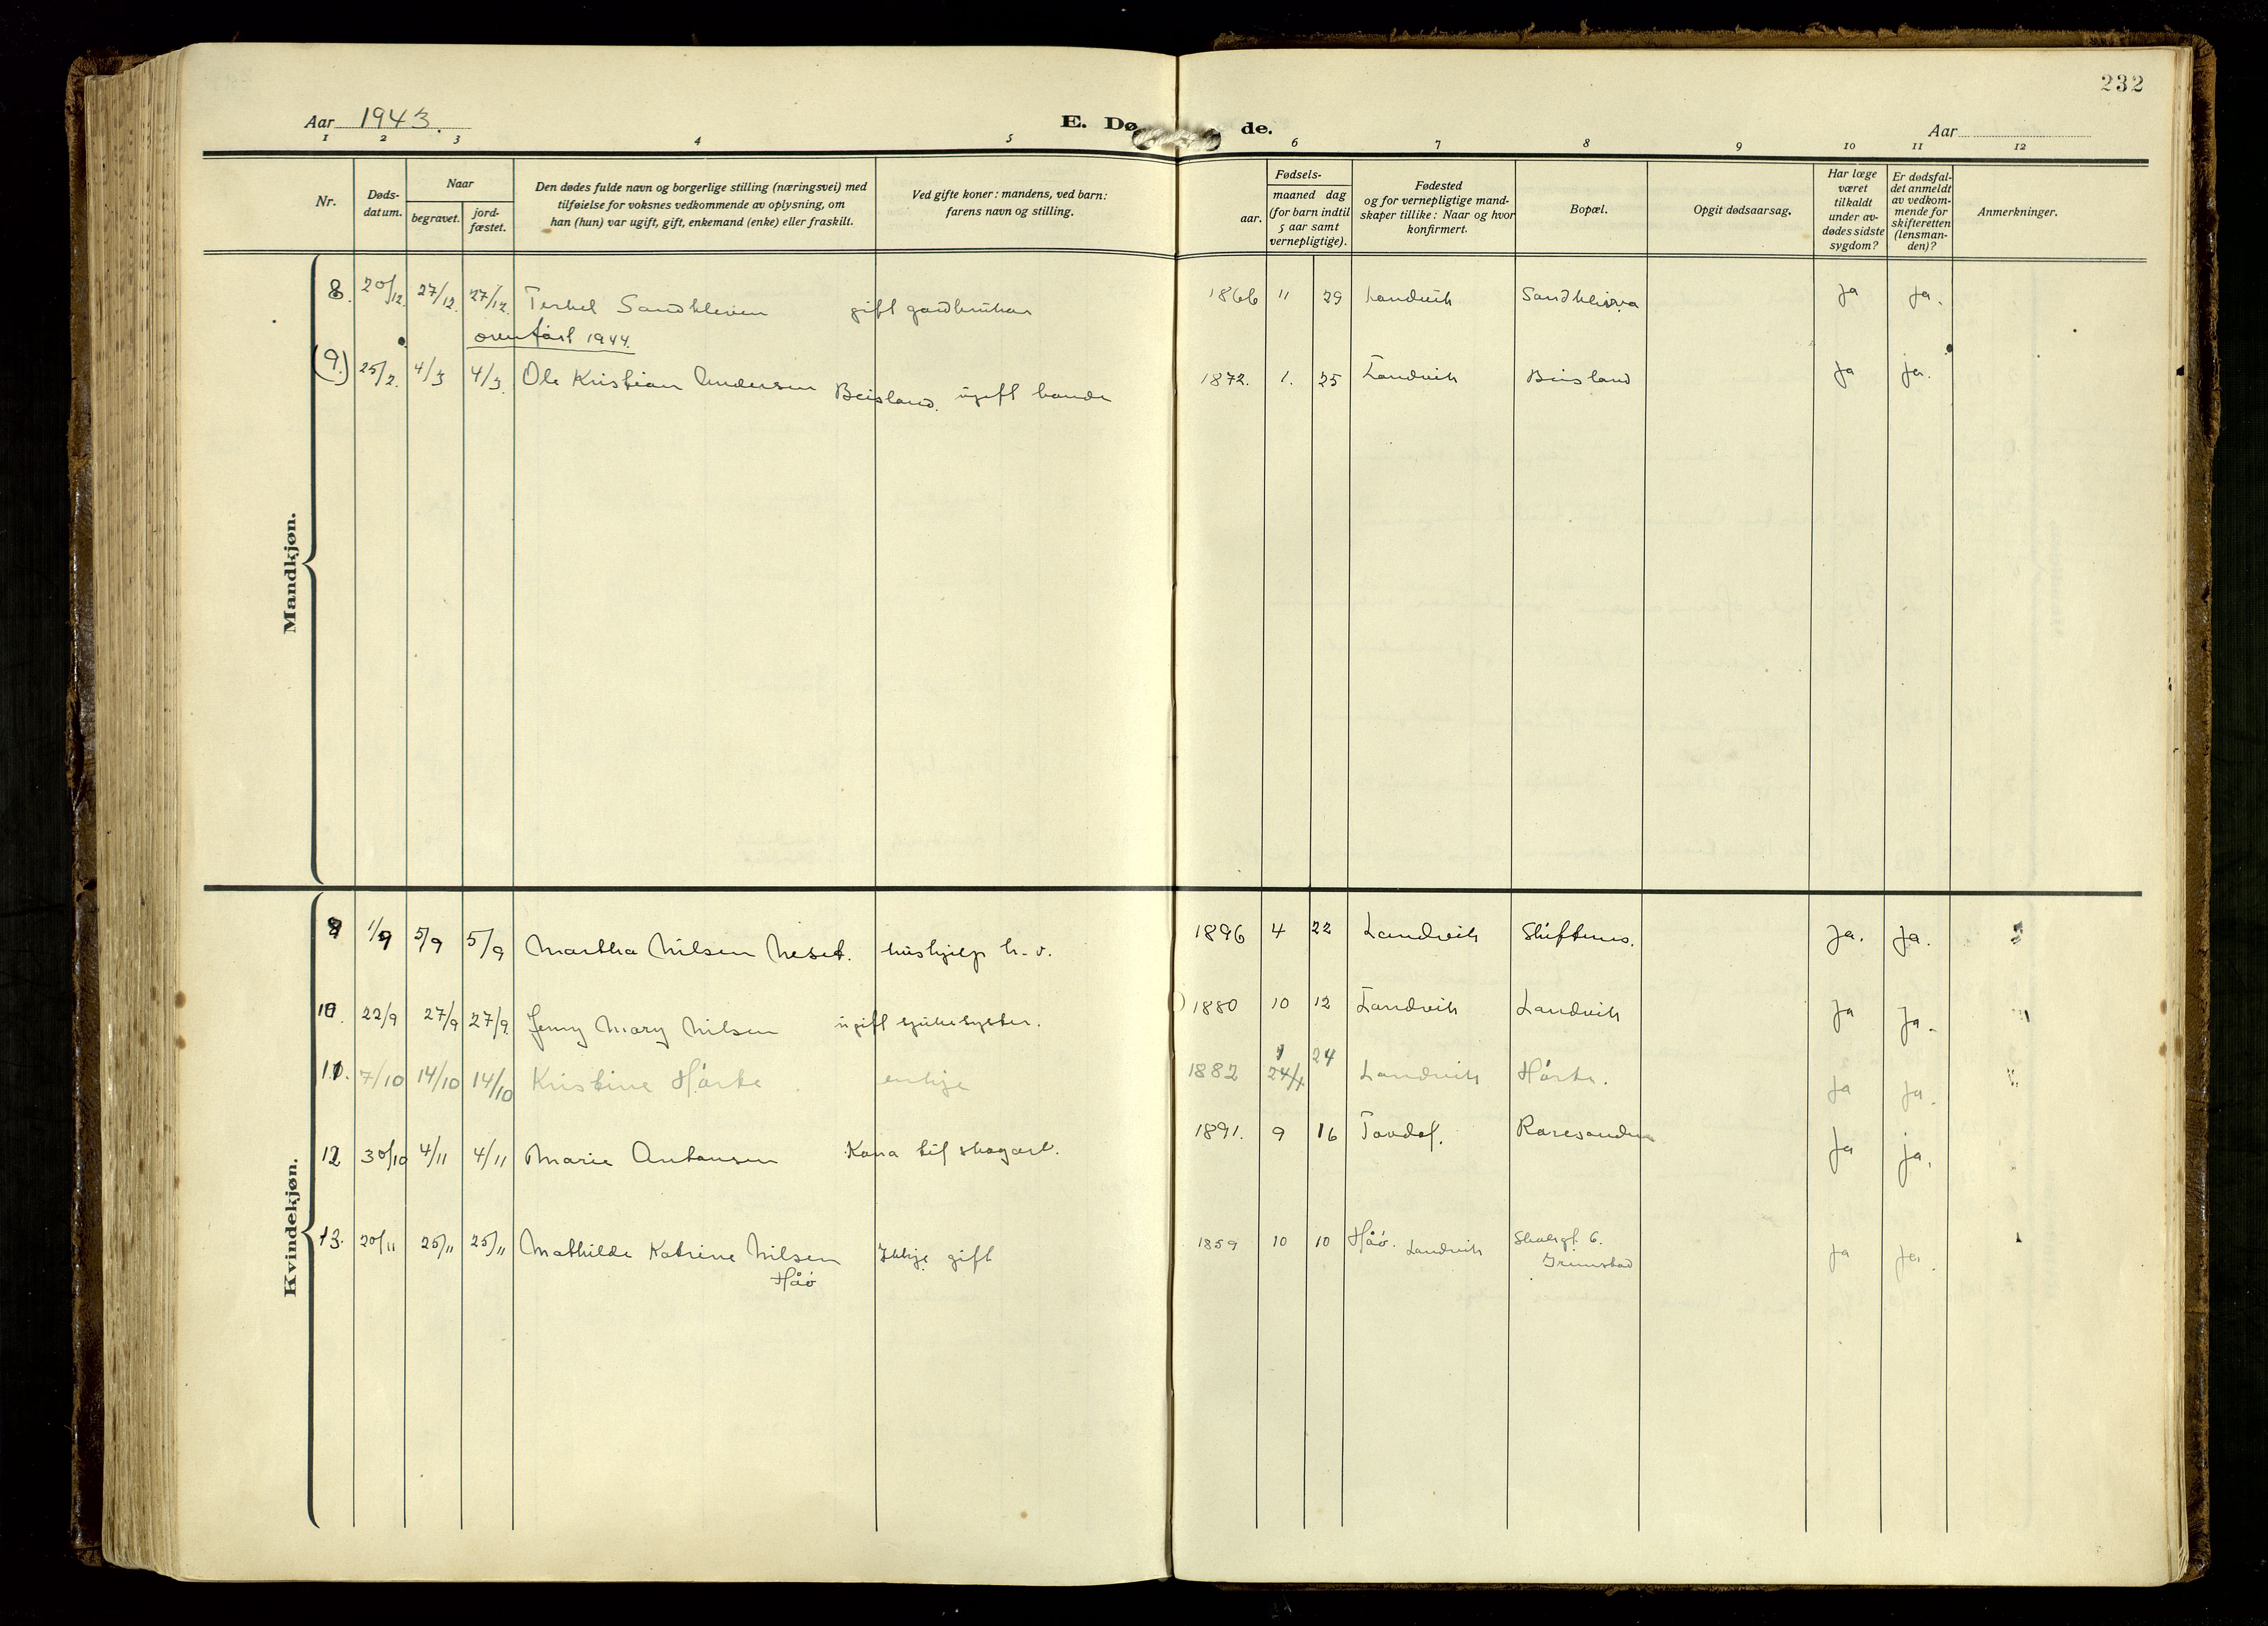 232
Aar 1943.
E. Dø de.
Aar
1 2 3 4 5 6 7 8 9 10 11 12
Nr.
Døds-
datum.
Naar
begravet.
jord-
fæstet.
Den dødes fulde navn og borgerlige stilling (næringsvei) med
tilføielse for voksnes vedkommende av oplysning, om
han (hun) var ugift, gift, enkemand (enke) eller fraskilt.
Ved gifte koner: mandens, ved barn:
farens navn og stilling.
Fødsels-
aar.
maaned dag
(for barn indtil
5 aar samt
vernepligtige).
Fødested
og for vernepligtige mand-
skaper tillike: Naar og hvor
konfirmert.
Bopæl.
Opgit dødsaarsag.
Har læge
været
tilkaldt
under av-
dødes sidste
sygdom?
Er dødsfal-
det anmeldt
av vedkom-
mende for
skifteretten
(lensman-
den)?
Anmerkninger.
Mandkjøn.
8. 20/12. 27/12. 27/12. Terkel Sandkleven gift 1866 11 29 Landvik ja ja.
overført 1944.
(9.) 25/2. 4/3 4/3. Ole Kristian Andersen Beisland. ugift bonde 1872. 1. 25 Landvik Beisland ja ja.
Kvindekjøn.
9 1/9 5/9 5/9 Martha Nilsen Neset. hushjelp h.v. 1896 4 22 Landvik Skiftenes. ja. ja.
10. 22/9 27/9 27/9. Jenny Mary Nilsen ugift sjukesyster. 1880 10 12 Landvik Landvik ja ja.
11. 7/10 14/10 14/10 Kristine Hørte. enkje 1882 24/1. 1 24 Landvik Hørte. ja ja.
12 30/10 4/11 4/11 Marie Antonsen Kona til skogarb. 1891. 9 16 Tovdal. Roresanden ja ja.
13. 20/11 25/11 25/11 Mathilde Katrine Nilsen Ikkje gift 1859 10 10 Håø. Landvik 6. ja ja.
Håø Grimstad